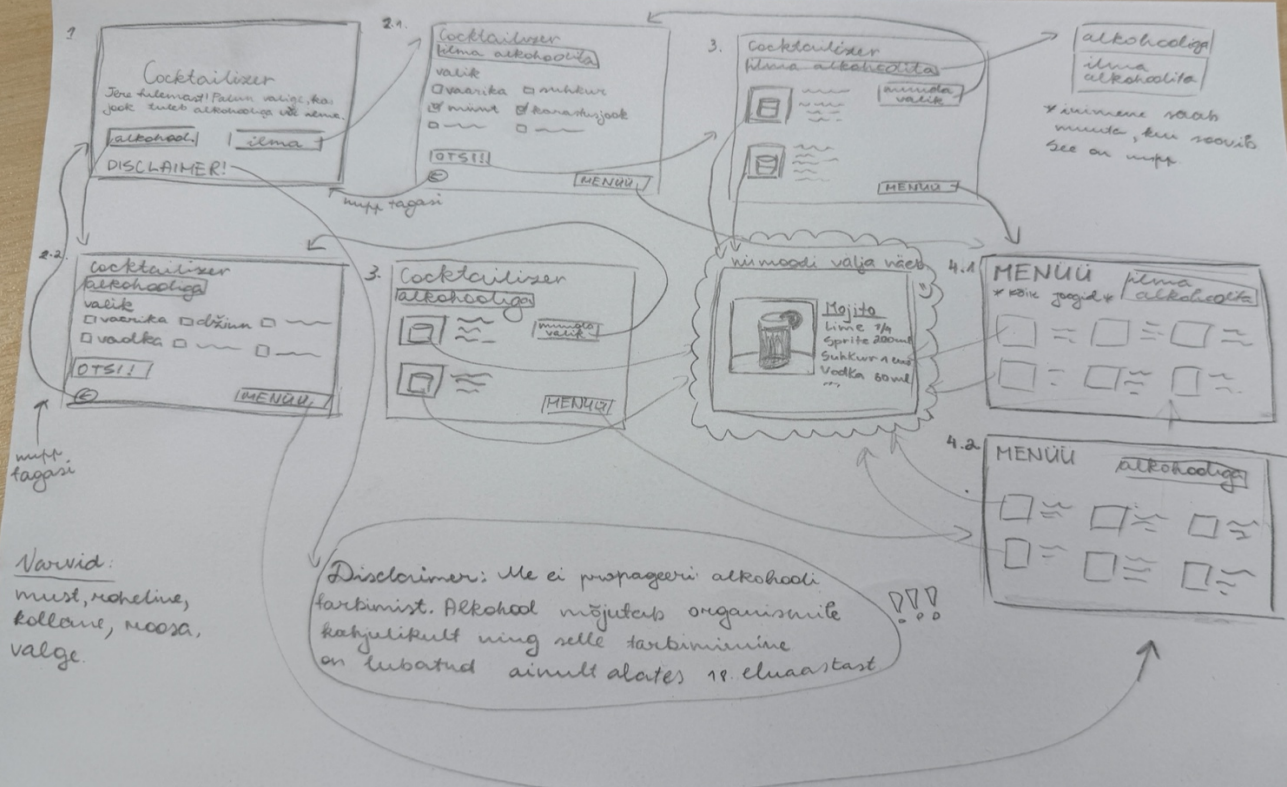 1
Cocktailizer
Tere tulemast! Palun valige, kas
jook tuleb alkohooliga või ilma.
alkohol.
ilma
DISCLAIMER!
2.1.
Cocktailizer
ilma alkohoolita
valik
vaarika
suhkur
münt
karastusjook
OTSI!!
MENÜÜ
nupp tagasi
3.
Cocktailizer
ilma alkohoolita
muuda
valik
MENÜÜ
alkohooliga
ilma
alkohoolita
* inimene saab
muuta, kui soovib
See on nupp.
2.2.
Cocktailizer
alkohooliga
valik
vaarika
džinn
vodka
OTSI!!
MENÜÜ
nupp
tagasi
3.
Cocktailizer
alkohooliga
muuda
valik
MENÜÜ
niimoodi välja näeb
Mojito
Lime 1/4
Sprite 200ml
Suhkur
Vodka 60ml
4.1
MENÜÜ
ilma
alkohoolita
* kõik joogid *
4.2
MENÜÜ
alkohooliga
Värvid:
must, roheline,
kollane, roosa,
valge.
Disclaimer: Me ei propageeri alkohooli
tarbimist. Alkohol mõjutab organismile
kahjulikult ning selle tarbimimine
on lubatud ainult alates 18. eluaastast
!!!